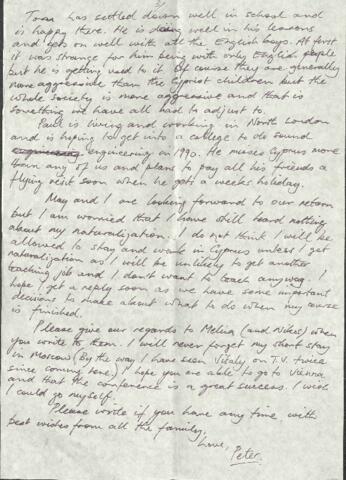 2/
has settled down well in school and
is happy there. He is doing well in his lessons
and gets on well with all the English boys. At first
it was strange for him being with only English people
but he is getting used to it. Of course they are generally
more aggressive than the Cypriot children but the
whole society is more aggressive and that is
something we have all had to adjust to.
Paul is living and working in North London
and is hoping to get into a college to do sound
engineering in 1990. He misses Cyprus more
than any of us and plans to pay all his friends a
flying visit soon when he gets a weeks holiday.
May and I are looking forward to our return
but I am worried that I have still heard nothing
about my naturalization. I do not think I will be
allowed to stay and work in Cyprus unless I get
naturalization as I will be unlikely to get another
teaching job and I don't want to teach anyway. I
hope I get a reply soon as we have some important
decisions to make about what to do when my course
is finished.
Please give our regards to Melina (and Nikos) when
you write to them. I will never forget my short stay
in Moscow (By the way I have seen Vitaly on T.V. twice
since coming here.) I hope you are able to go to Vienna
and that the conference is a great success. I wish
I could go myself.
Please write if you have any time with
best wishes from all the family.
Love,
Peter.